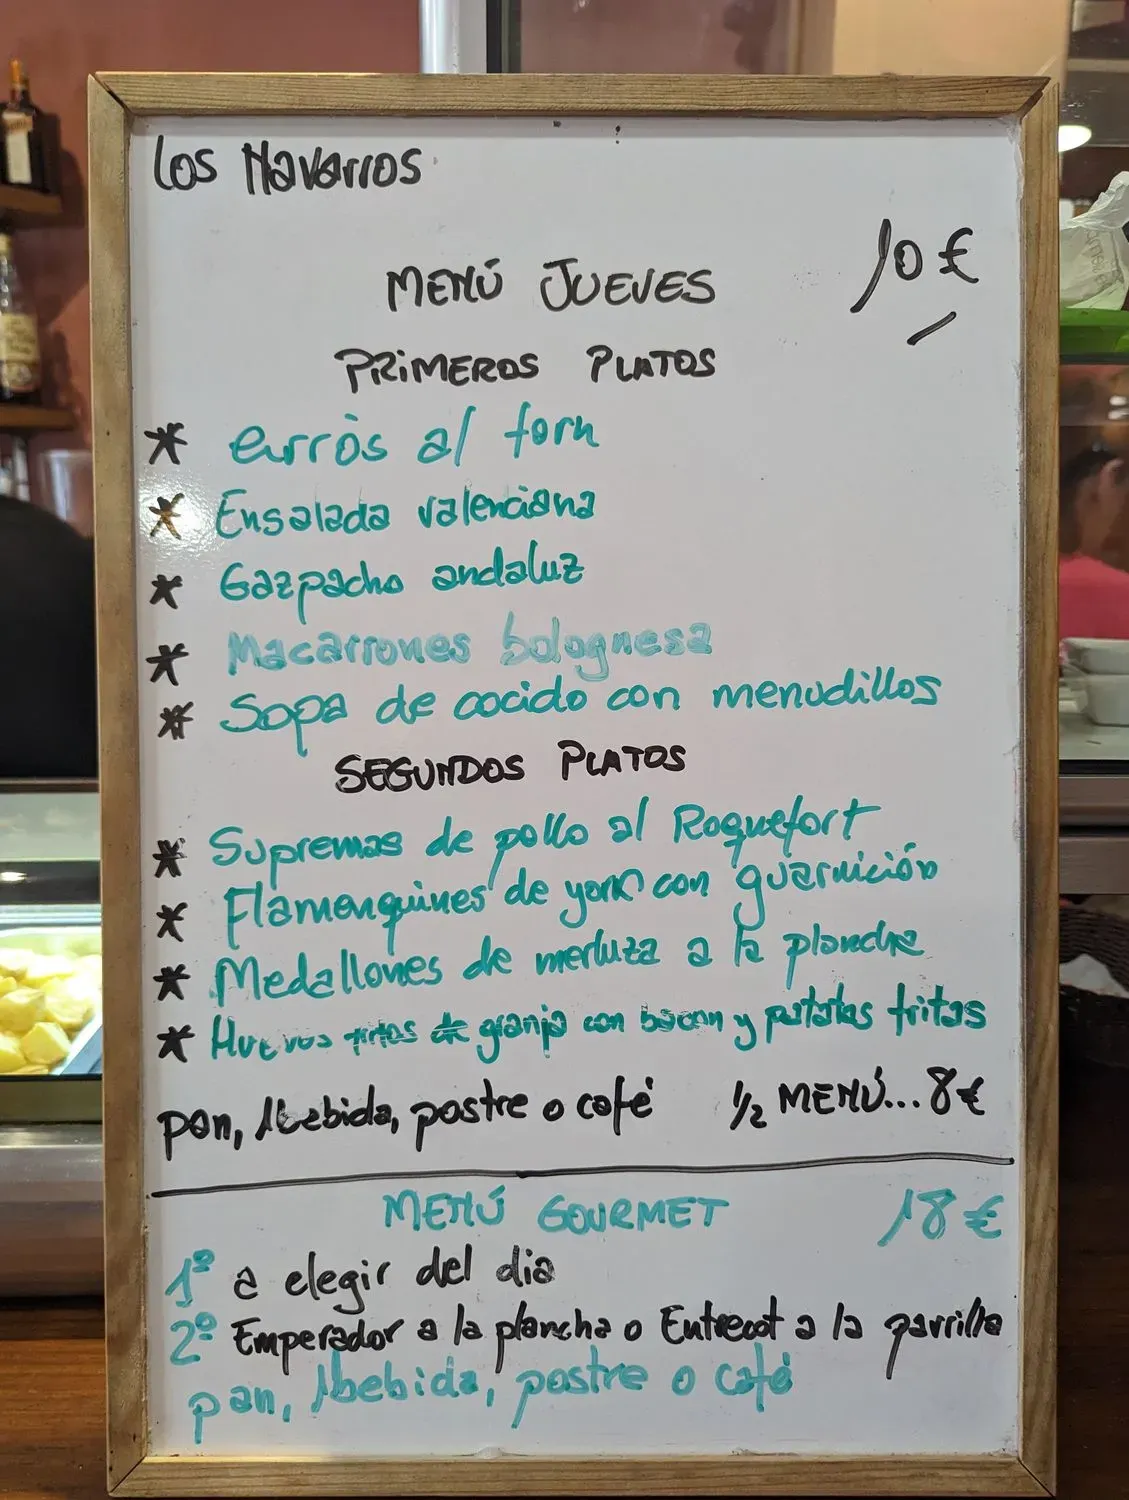 Los Navarros
10 €
MENÚ JUEVES
PRIMEROS PLATOS
* arròs al forn
* Ensalada valenciana
* Gazpacho andaluz
* Macarrones bolognesa
* Sopa de cocido con menudillos
SEGUNDOS PLATOS
* Supremas de pollo al Roquefort
* Flamenquines de york con guarnición
* Medallones de merluza a la plancha
* Huevos fritos de granja con bacon y patatas fritas
pan, 1 bebida, postre o café 1/2 MENÚ... 8 €
MENÚ GOURMET 18 €
1º a elegir del dia
2º Emperador a la plancha o Entrecot a la parrilla
pan, 1 bebida, postre o café